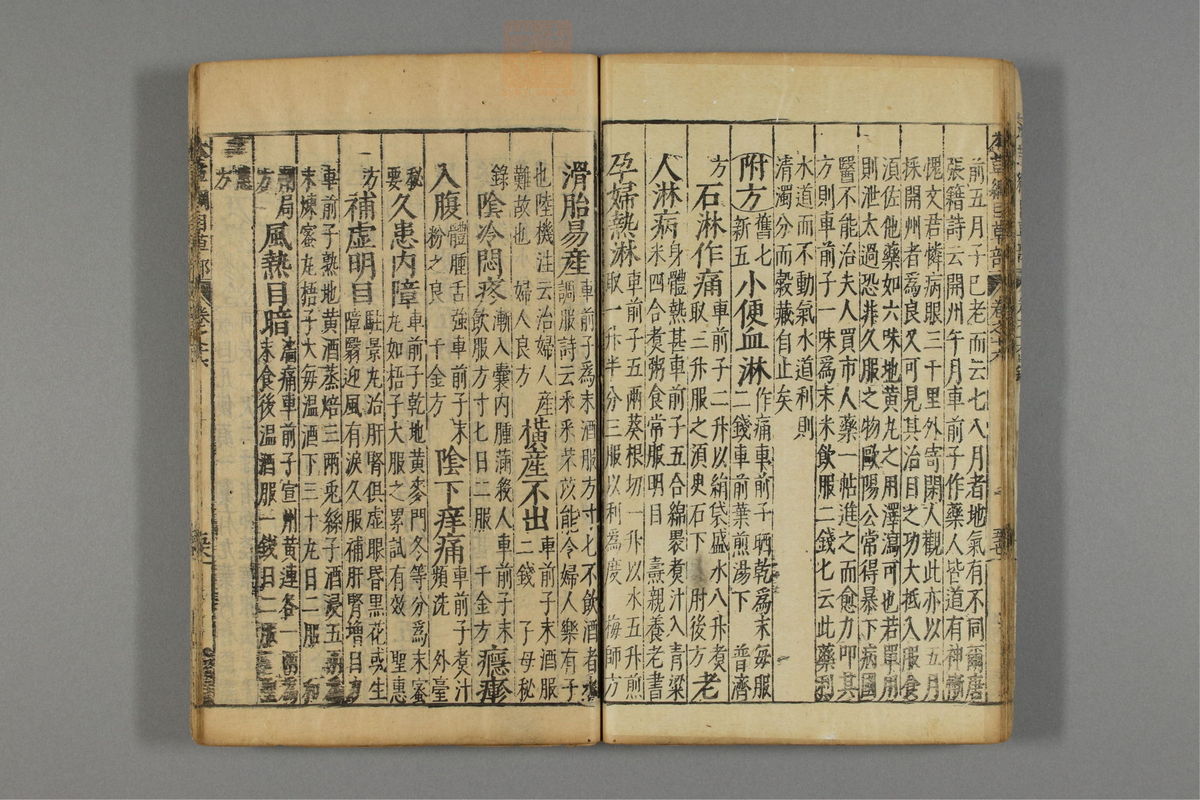 前五月子已老而云七八月者地氣有不同爾唐
張籍詩云開州午月車前子作藥人皆道有神慚
愧文君憐病眼三十里外寄閑人觀此亦以五月
採開州者為良又可見其治目之功大抵入服食
須佐他藥如六味地黃丸之用澤瀉可也若單用
則泄太過恐非久服之物歐陽公常得暴下病國
醫不能治夫人買市人藥一帖進之而愈力叩其
方則車前子一味為末米飲服二錢匕云此藥利
水道而不動氣水道利則
清濁分而穀藏有止矣
附方舊七新五小便血淋作痛車前子晒乾為末每服二錢車前葉煎湯下 普濟
方石淋作痛車前子二升以絹袋盛水八升煮取三升服之須臾石下 肘後方老
人淋病身體熱甚車前子五合綿裹煮汁入青粱米四合煮粥食常服明目 壽親養老書
孕婦熱淋車前子五兩葵根切一升以水五升煎取一升半分三服以利為度 梅師方
滑胎易產車前子為末酒服方寸匕不飲酒者水調服詩云采采芣苡能令婦人樂有子
也陸機注云治婦人產難故也 婦人良方橫產不出車前子末酒服二錢 子母秘
錄陰冷悶疼漸入囊內腫滿殺人車前子末飲服方寸匕日二服 千金方癮疹
入腹體腫舌強車前子末粉之良 千金方陰下痒痛車前子煮汁頻洗 外臺
秘要久患內障車前子乾地黃麥門冬等分為末蜜丸如梧子大服之累試有效 聖惠
方補虛明目駐景丸治肝腎俱虛眼昏黑花或生障翳迎風有淚久服補肝腎增目力
車前子熟地黃酒蒸焙三兩兔絲子酒浸五兩為末煉蜜丸梧子大每溫酒下三十丸日二服 和
劑局方風熱目暗澀痛車前子宣州黃連各一兩為末食後溫酒服一錢日二服
聖惠方
本草綱目草部 卷之十六